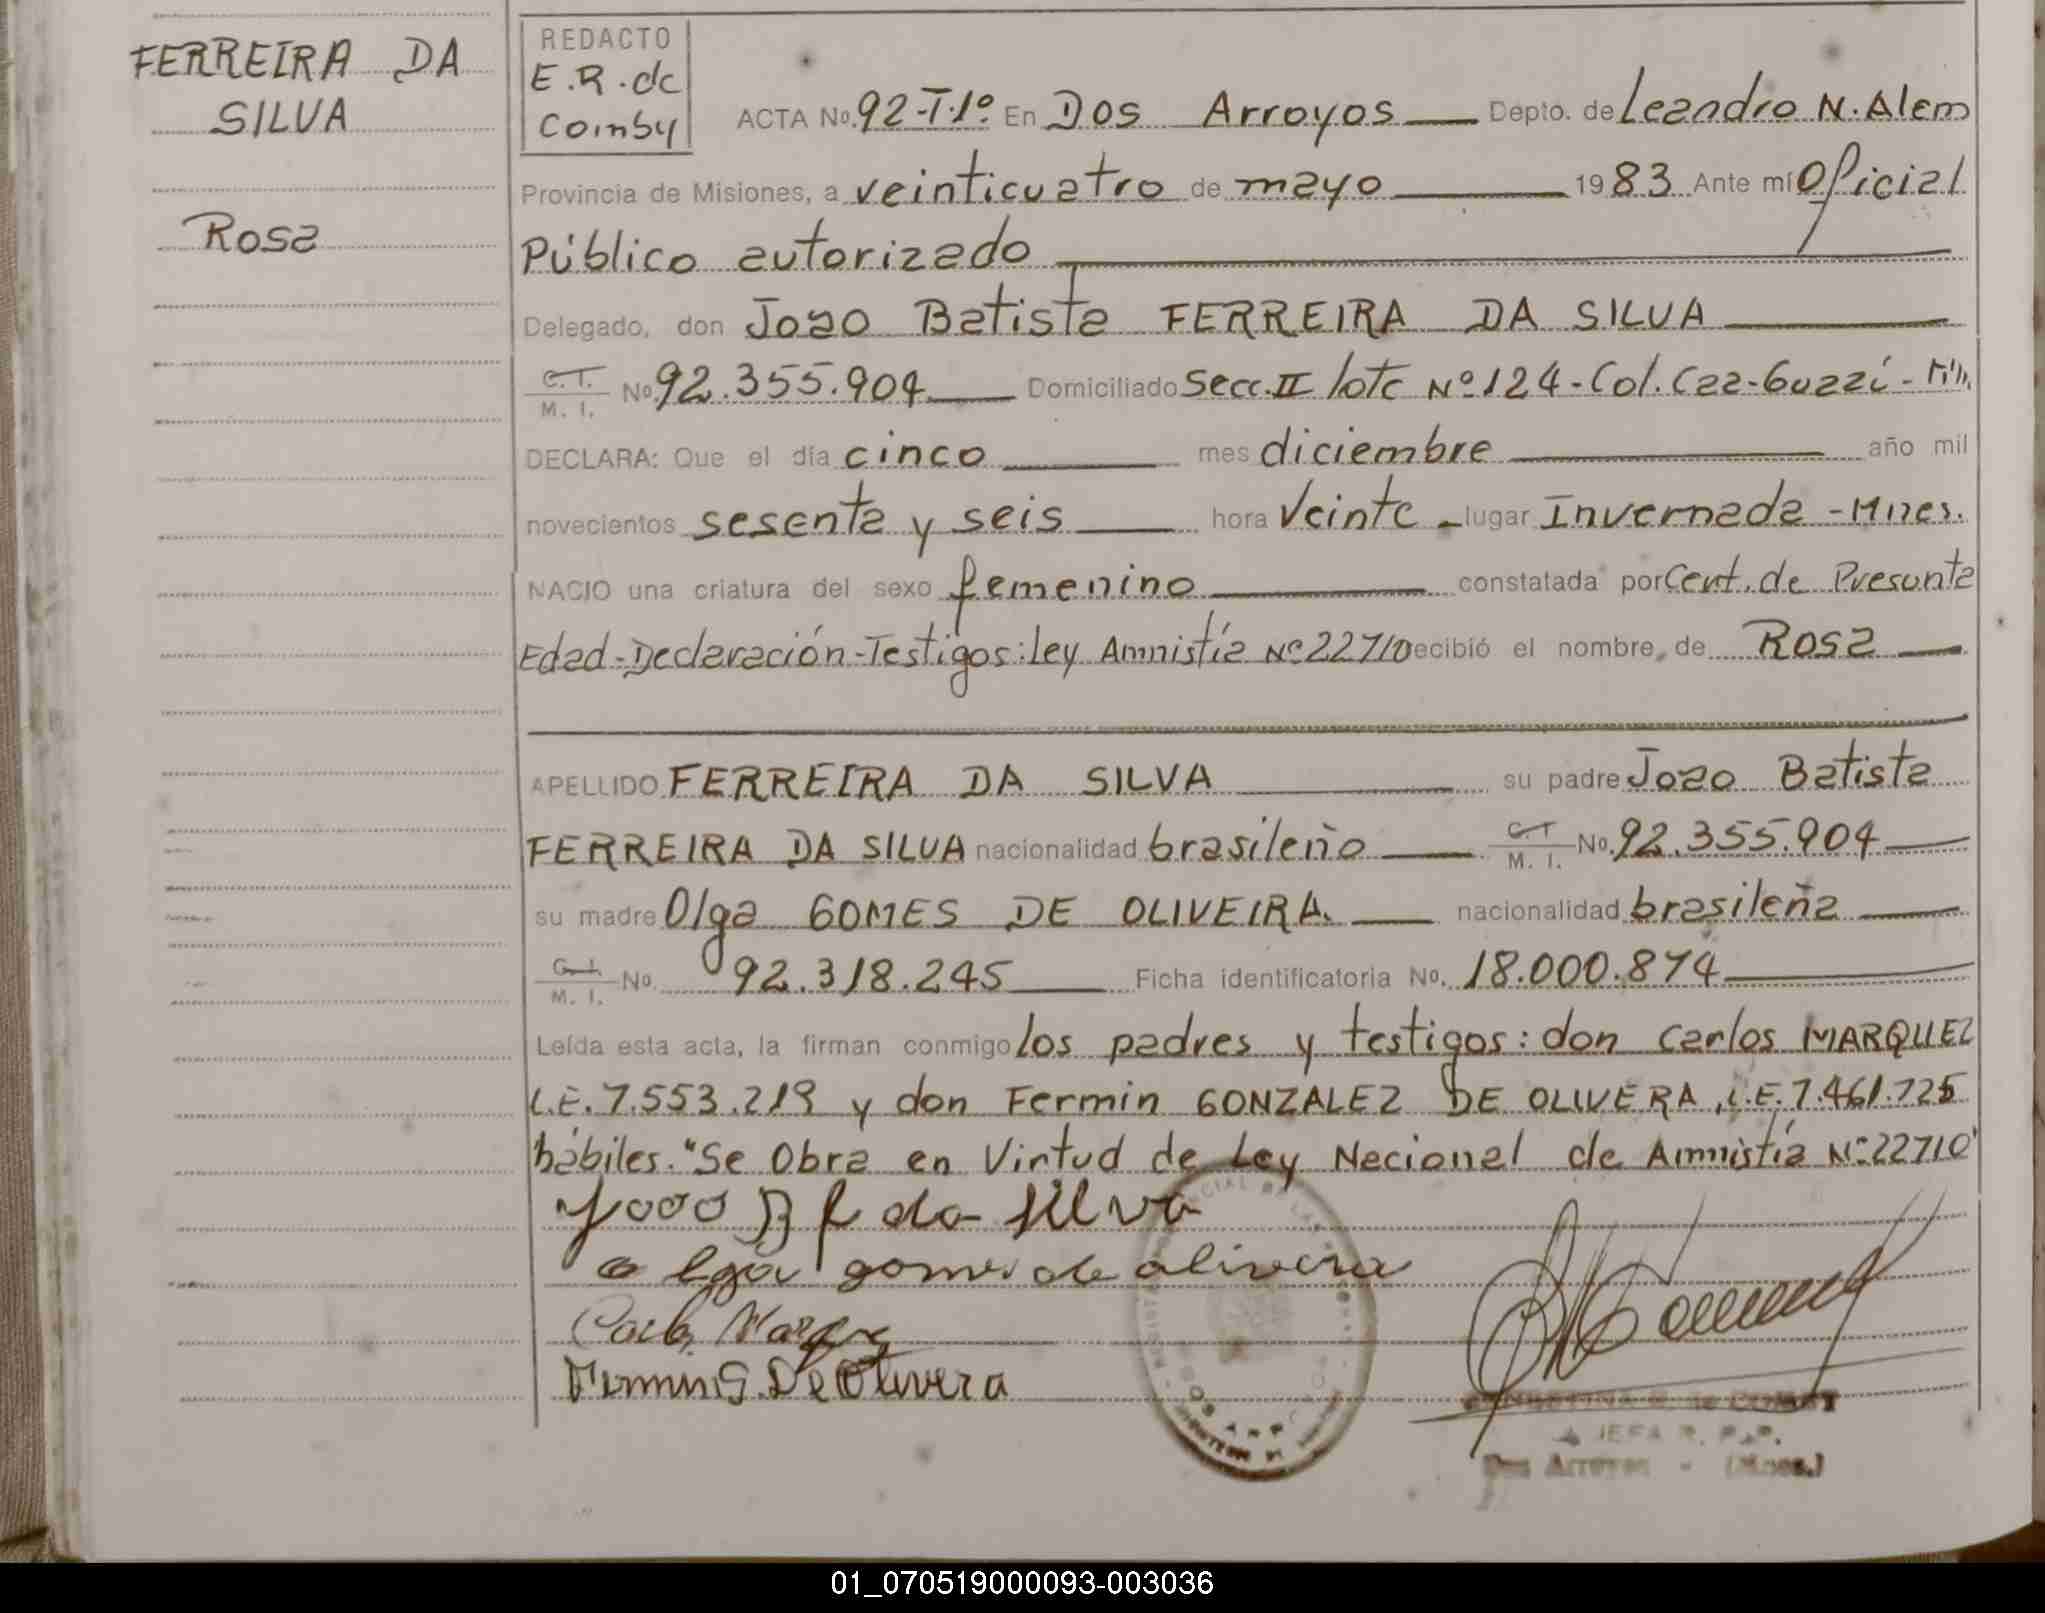 FERREIRA DA
SILVA
Rosa
REDACTO
E.R. de
Coinby
ACTA No. 92-T.1º En Dos Arroyos Depto. de Leandro N. Alem
Provincia de Misiones, a veinticuatro de mayo 1983 Ante mí Oficial
Público autorizado
Delegado, don Joao Batista FERREIRA DA SILVA
C.I. M. I. No. 92.355.904 Domiciliado Secc. II lote Nº 124-Col. Caa-Guazzí-
DECLARA: Que el día cinco mes diciembre año mil
novecientos sesenta y seis hora Veinte lugar Invernada - Mnes.
NACIO una criatura del sexo femenino constatada por Cert. de Presunta
Edad-Declaración-Testigos: Ley Amnistía Nº 22710 recibió el nombre de Rosa
APELLIDO FERREIRA DA SILVA su padre Joao Batista
FERREIRA DA SILVA nacionalidad brasileño C.I. M. I. No. 92.355.904
su madre Olga GOMES DE OLIVEIRA. nacionalidad brasileña
C.I. M. I. No. 92.318.245 Ficha identificatoria No. 18.000.874
Leída esta acta, la firman conmigo los padres y testigos: don Carlos MARQUEZ
L.E. 7.553.219 y don Fermin GONZALEZ DE OLIVERA, L.E. 7.461.725
hábiles. "Se Obra en Virtud de Ley Nacional de Amnistía Nº 22710"
Joao B F da Silva
olga gomes de olivera
Carlos Marquez
Fermin G. De Olivera
JEFA R. P. P.
Dos Arroyos - (Mnes.)
01_070519000093-003036